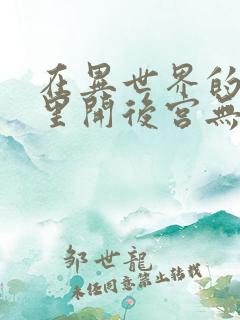 在異世界的
里開後宮無
邹世龍
未经同意禁止转载